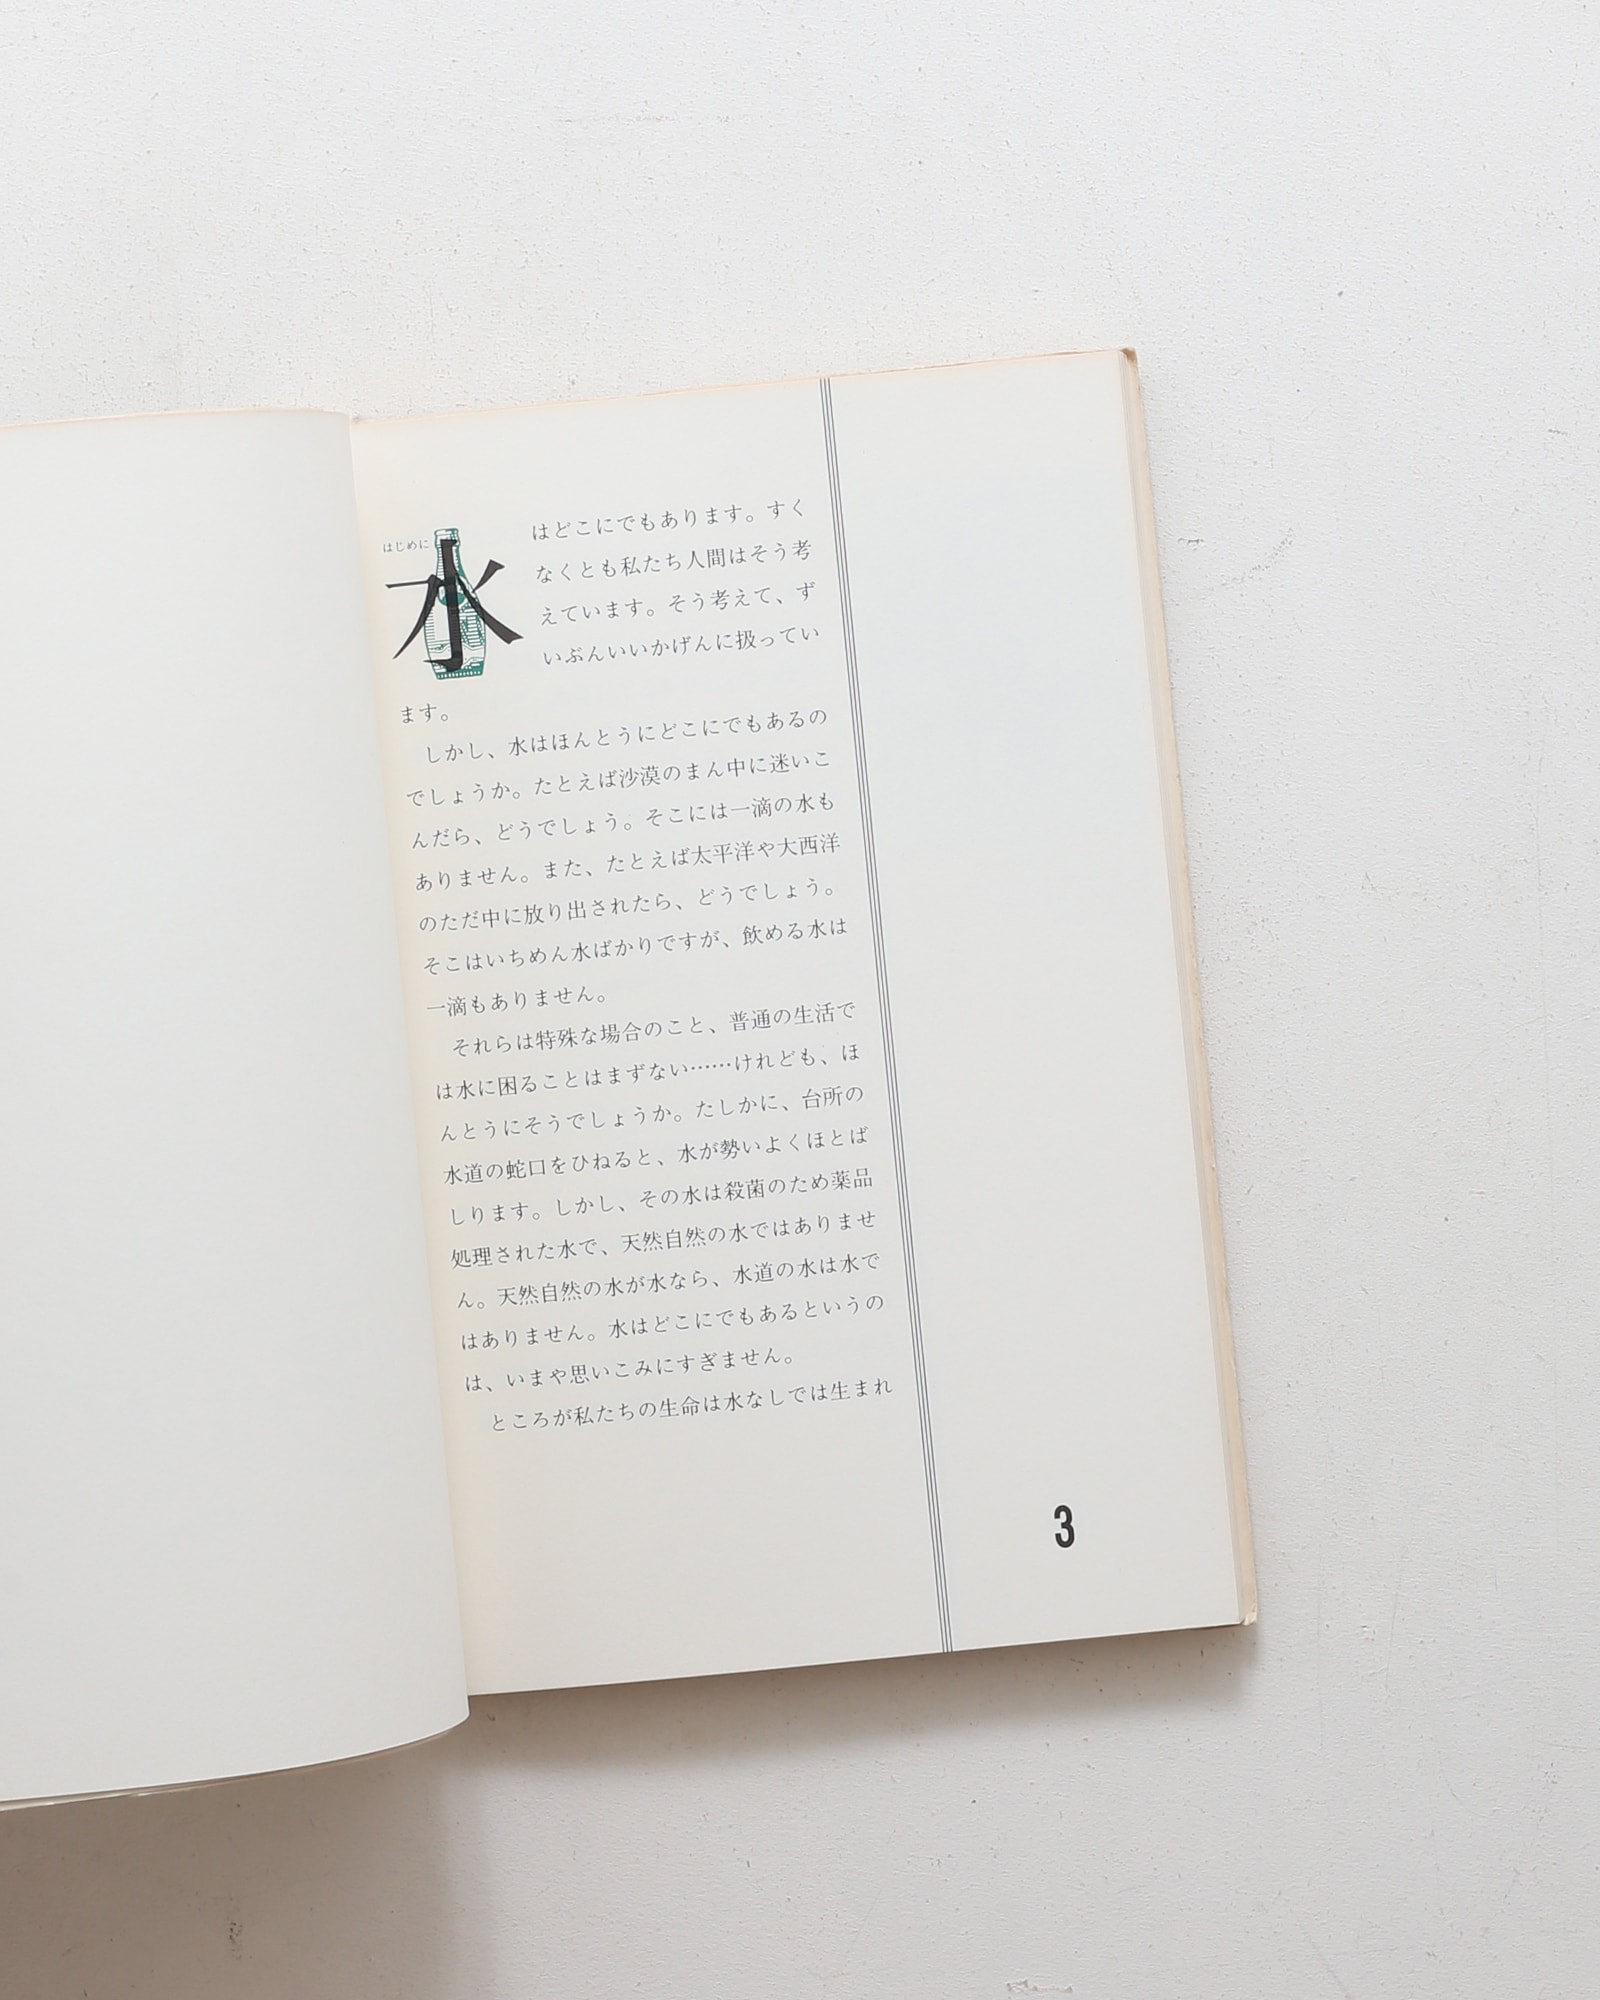 はじめに
水
はどこにでもあります。すく
なくとも私たち人間はそう考
えています。そう考えて、ず
いぶんいいかげんに扱ってい
ます。
しかし、水はほんとうにどこにでもあるの
でしょうか。たとえば沙漠のまん中に迷いこ
んだら、どうでしょう。そこには一滴の水も
ありません。また、たとえば太平洋や大西洋
のただ中に放り出されたら、どうでしょう。
そこはいちめん水ばかりですが、飲める水は
一滴もありません。
それらは特殊な場合のこと、普通の生活で
は水に困ることはまずない……けれども、ほ
んとうにそうでしょうか。たしかに、台所の
水道の蛇口をひねると、水が勢いよくほとば
しります。しかし、その水は殺菌のため薬品
処理された水で、天然自然の水ではありませ
ん。天然自然の水が水なら、水道の水は水で
はありません。水はどこにでもあるというの
は、いまや思いこみにすぎません。
ところが私たちの生命は水なしでは生まれ
3